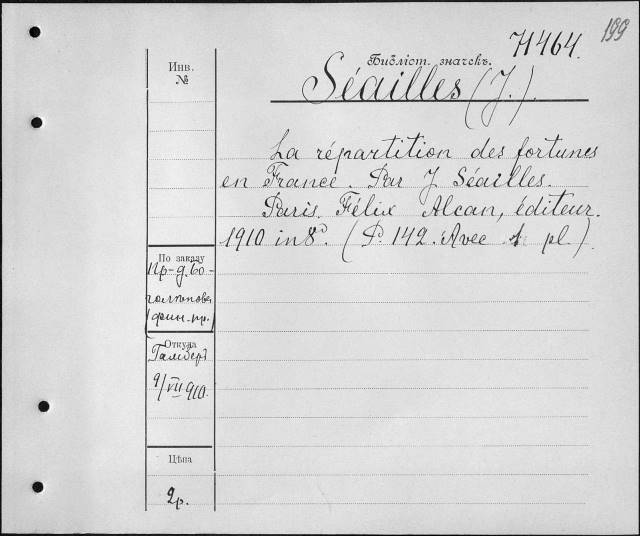 199
Н464.
Библіот. значекъ.
Séailles (J.).
La répartition des fortunes
en France. Par J. Séailles.
Paris. Félix Alcan, éditeur.
1910 in 8°. (P. 142. Avec 1 pl.)
Инв.
№
По заказу
пр-д. Бо-
(фин. пр.)
Откуда
Гамберъ
9/VII 910.
Цѣна
2р.